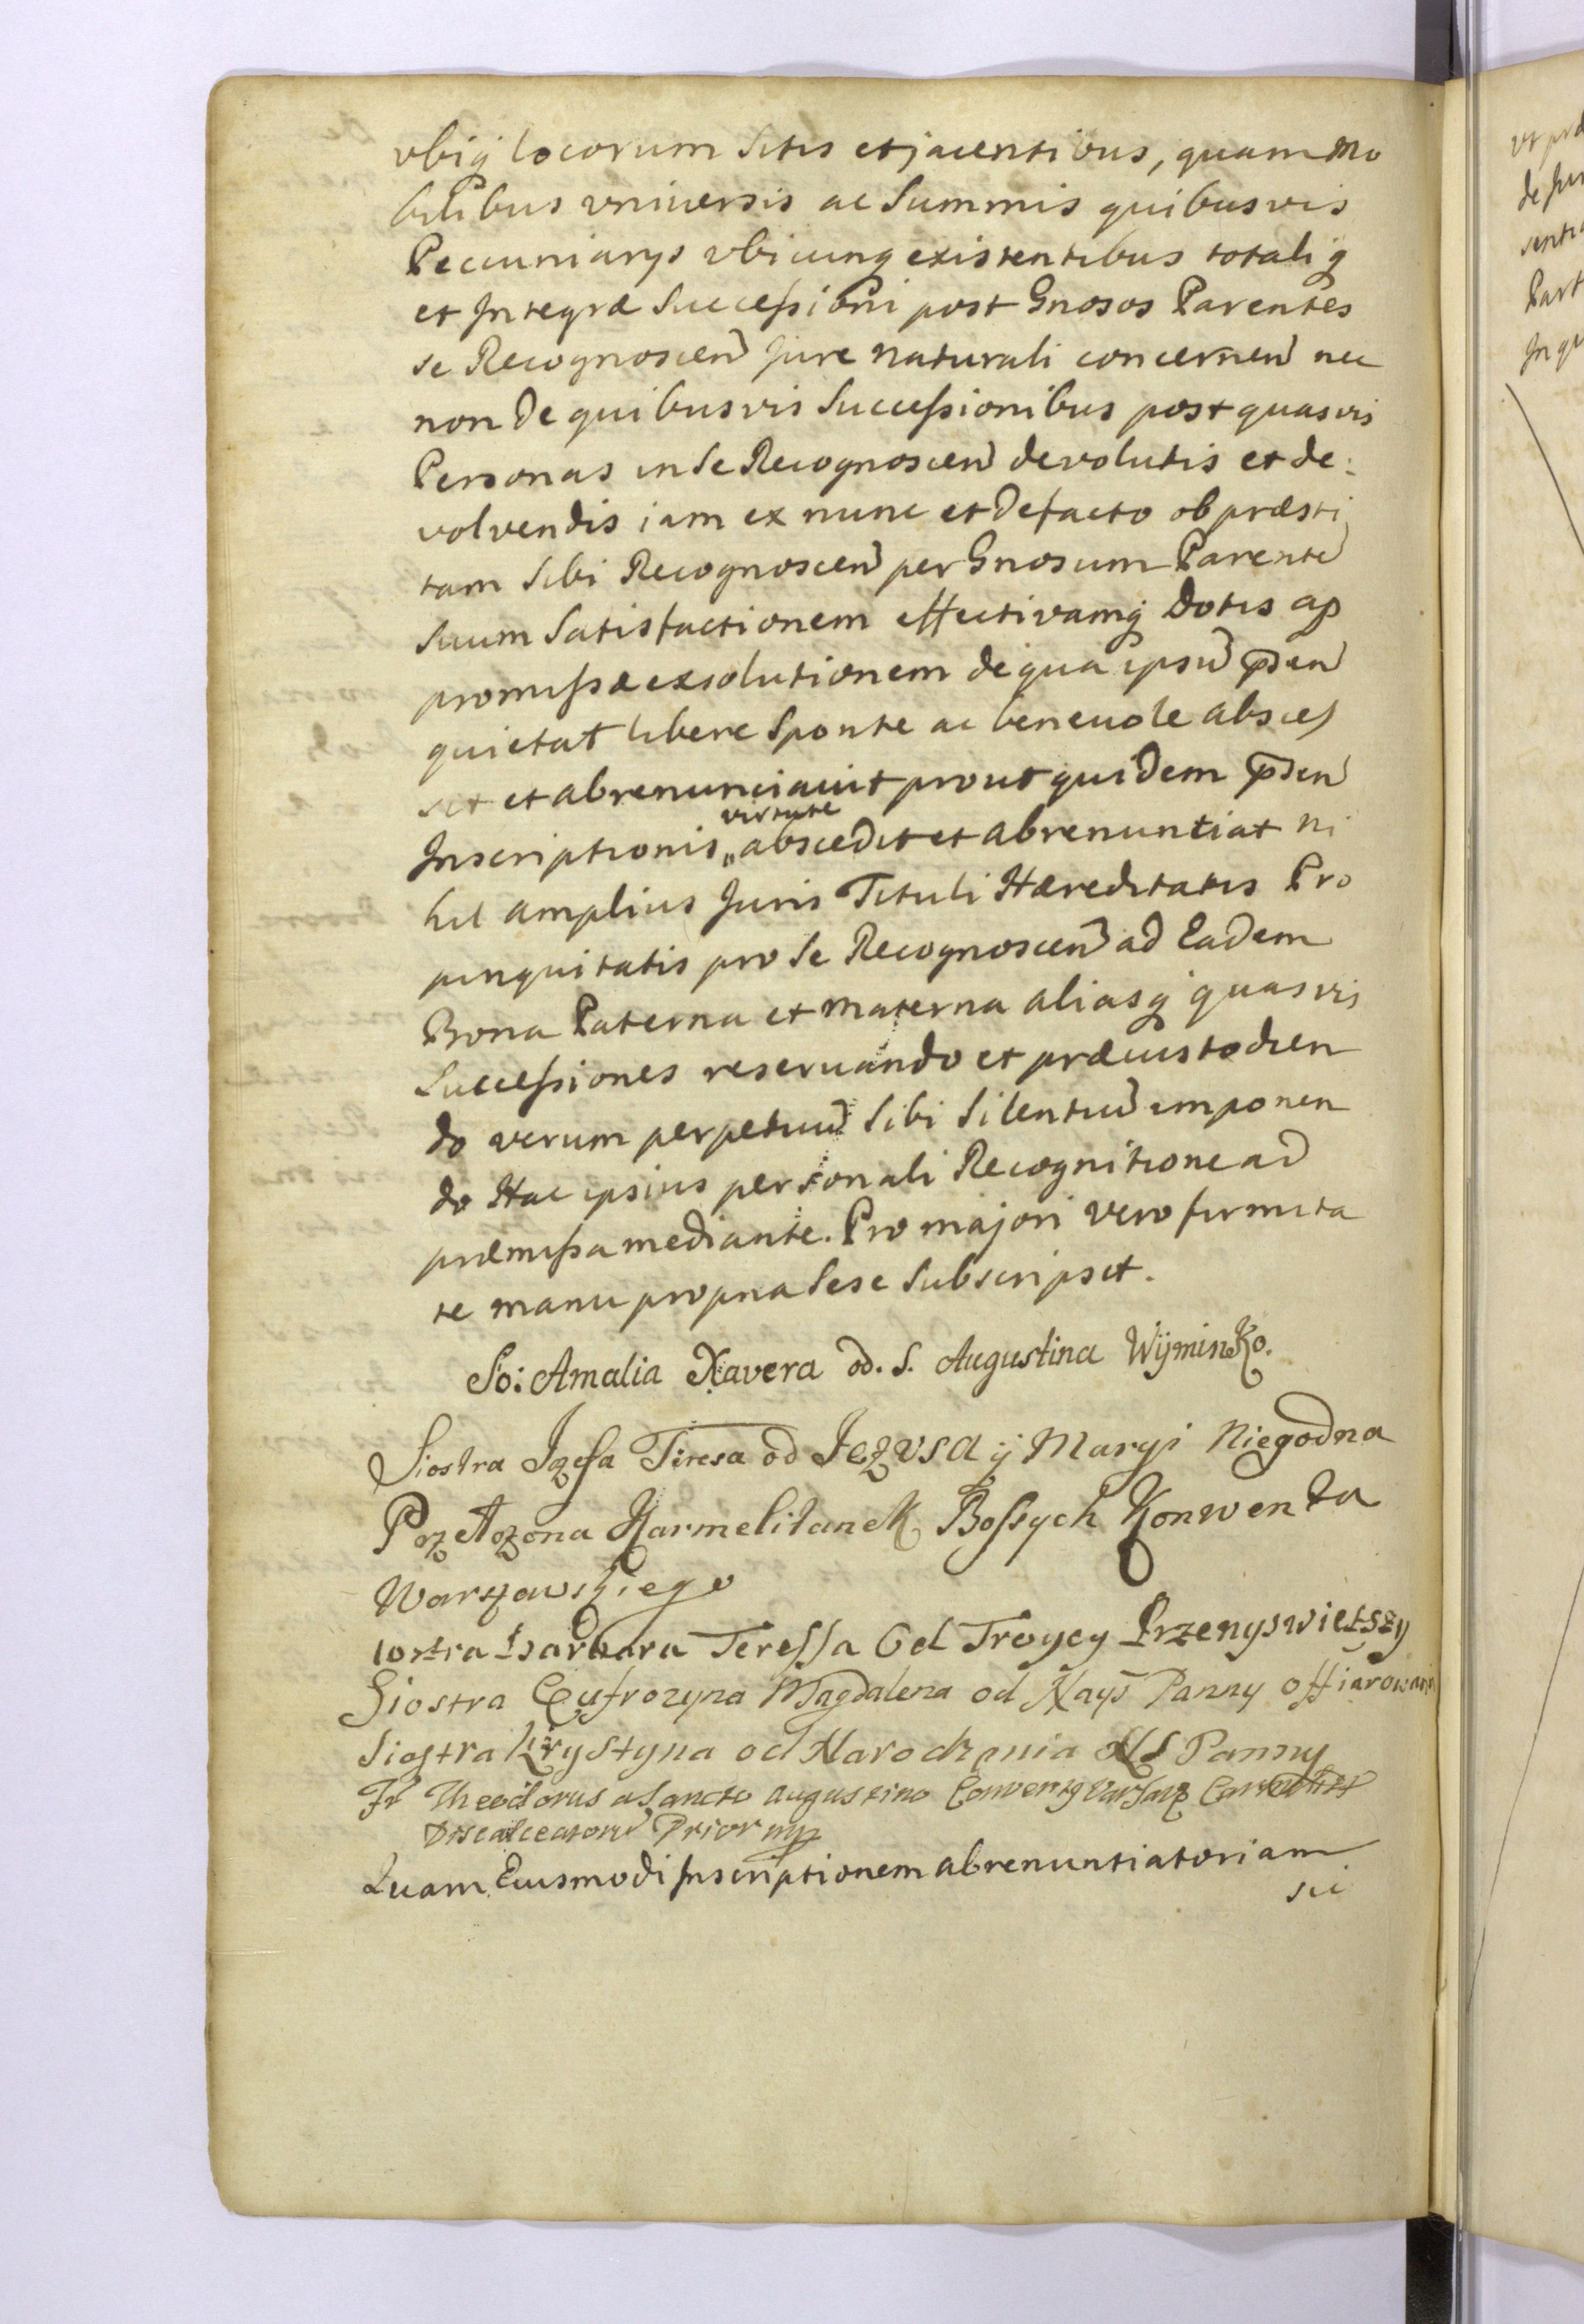 ubiq̃ locorum sitis et jacentibus, quam mo
bilibus universis ac summis quibusvis
Pecuniarys ubicunq existentibus totaliq
et Integræ successioni post Gnosos Parentes
se Recognoscen̄ Jure naturali concernen̄ nec
non de quibusvis successionibus post quasvis
Personas in se Recognoscen̄ devolutis et de:
volvendis iam ex nunc et de facto ob præsti
tam sibi Recognoscen̄ per Gnosum Parente̅
suum satisfactionem effectivamq̃ Dotis ap
promissæ exsolutionem de qua ipsu̅ p̅sen̅
quietat libere sponte ac benevole absces
sit et abrenunciavit prout quidem p̅sen̅
Inscriptionis virtute abscedit et abrenuntiat ni
hil amplius Juris Tituli Hæreditatis Pro
pinquitatis pro se Recognoscen̄ ad Eadem
Bona Paterna et Materna aliasq̃ quasvis
Successiones reservando et præcustodien
do verum perpetuu̅ sibi silentiu̅ imponen
do Hac ipsius personali Recognitione ad
præmissa mediante. Pro majori vero firmita
te manu propria sese subscripsit.
So: Amalia Xavera od. S. Augustina Wijminko.
Siostra Jzefa Tiresa od Jezusa ij Maryi Niegodna
Przełozona Karmelitanek Bossych Konwenta
Warszawskiego
iostra Barbara Teressa Od Troycy Przenyswietszy
Siostra Eufrozyna Magdalena od Nayś Panny offiarowani
Siostra Krystyna od Narodzenia NS Panny
Fr Theodorus a Sancto Augustino Conventq Varsav
Discalceatoru̅ Prior mp
Quam Eiusmodi Inscriptionem abrenuntiatoriam
sic